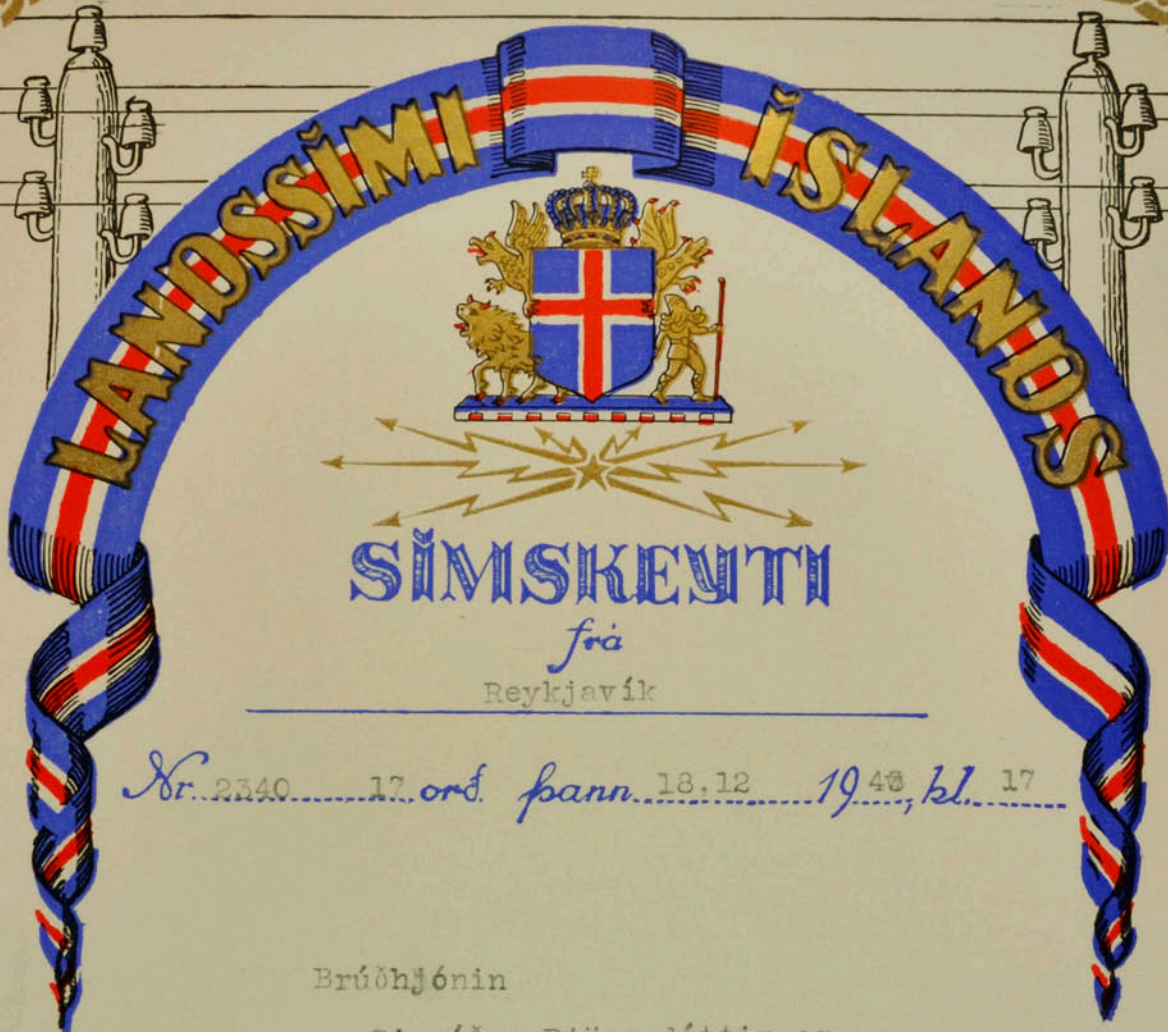 LANDSSÍMI ÍSLANDS
SÍMSKEYTI
frá
Reykjavík
Nr. 2340 17 orð. þann 18.12 19 kl. 17
Brúðhjónin